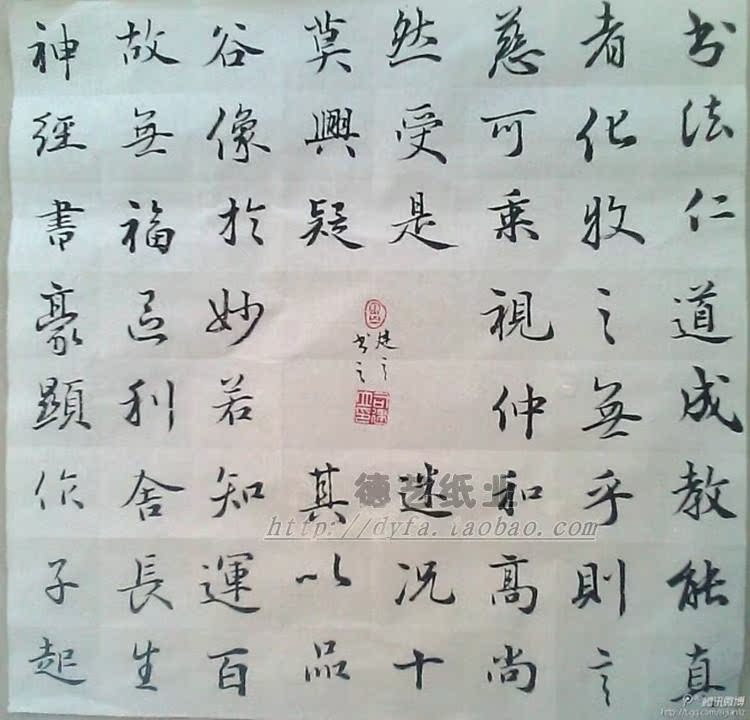 书法仁道成教能真
者化牧之無乎則言
慈可乘視仲和高尚
然受是迷况十
莫興疑其以品
谷像於妙若知運百
故無福忘利舍長生
神經書豪顯作子起
建之
书之
德艺纸业
http://dyfa.taobao.com
腾讯微博